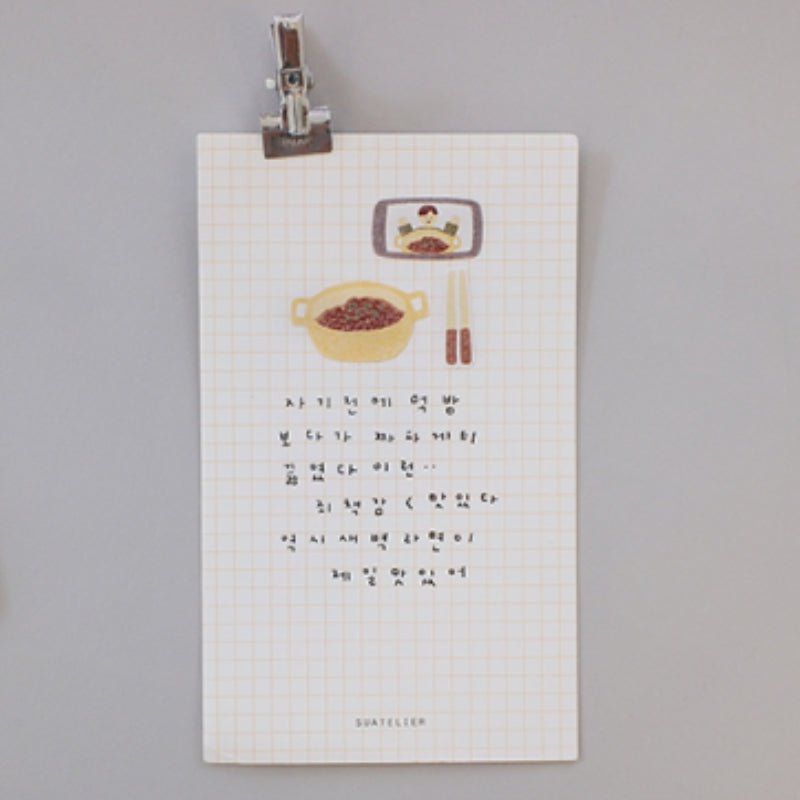 자기전에 먹방
보다가 짜파게티
끓였다 이런..
죄책감 < 맛있다
역시 새벽라면이
제일맛있어
SUATELIER